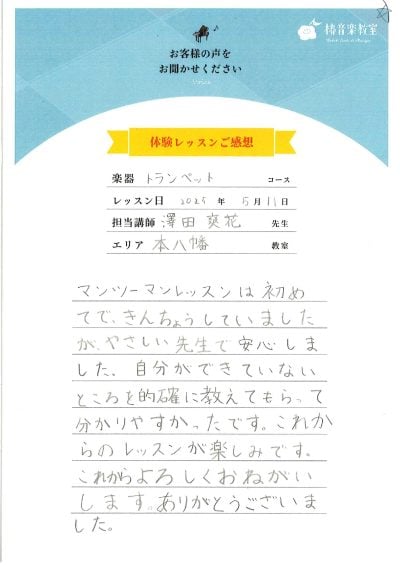 椿音楽教室
お客様の声を
お聞かせください
Voice
体験レッスンご感想
楽器 トランペット コース
レッスン日 2025 年 5月11日
担当講師 澤田 爽花 先生
エリア 本八幡 教室
マンツーマンレッスンは初め
てで、きんちょうしていました
が、やさしい先生で安心しま
した、自分ができていない
ところを的確に教えてもらって
分かりやすかったです。これか
らのレッスンが楽しみです。
これからよろしくおねがい
します。ありがとうございま
した。